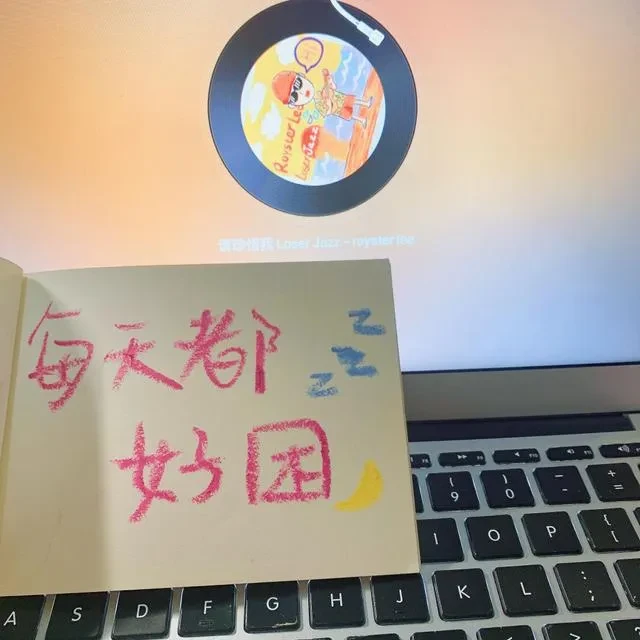 Hi
Royster Lee
Loser Jazz
Loser Jazz - royster lee
每天都
zzz
好困
(
9
)
0
-
+
=
I
O
P
{
[
A
S
D
F
G
H
J
K
L
:
;